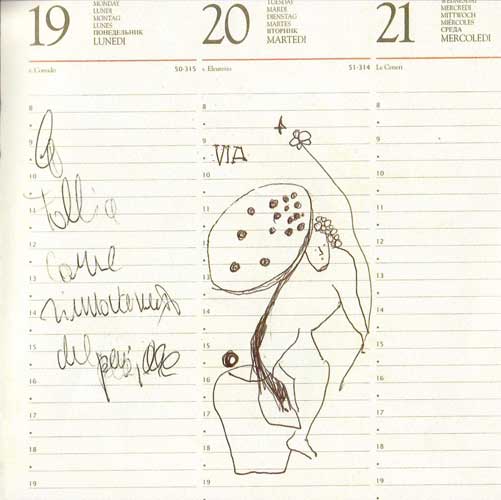 19
MONDAY
LUNDI
MONTAG
LUNES
ПОНЕДЕЛЬНИК
LUNEDI
s. Corrado 50-315
8
9
10
11
12
13
14
15
16
17
18
19
Follia
come
del
20
TUESDAY
MARDI
DIENSTAG
MARTES
ВТОРНИК
MARTEDI
s. Eleuterio 51-314
8
9
10
11
12
13
14
15
16
17
18
19
VIA
21
WEDNESDAY
MERCREDI
MITTWOCH
MIÉRCOLES
СРЕДА
MERCOLEDI
Le Ceneri
8
9
10
11
12
13
14
15
16
17
18
19